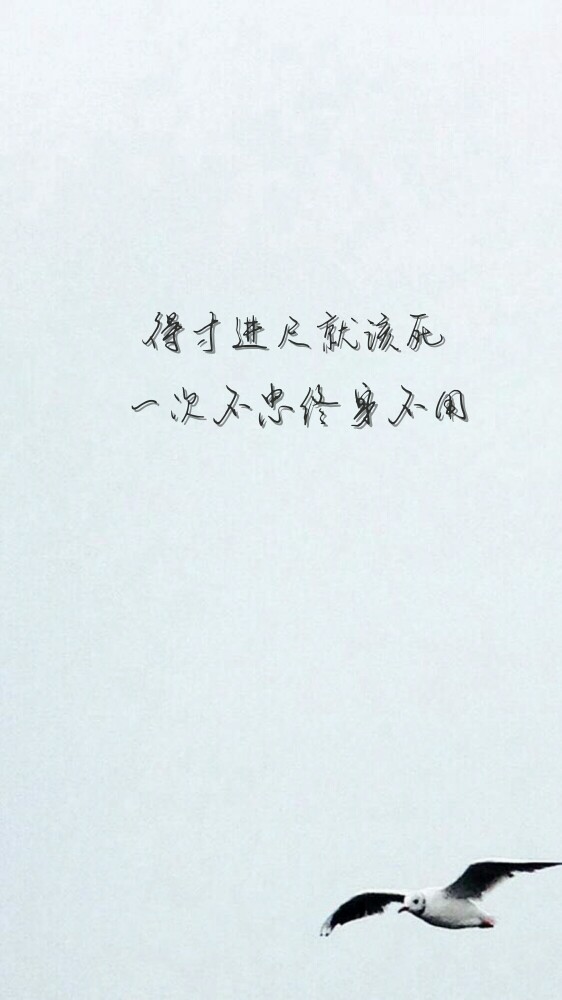 得寸进尺就该死
一次不忠终身不用